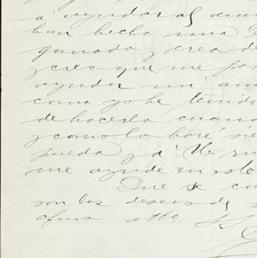 a ayudar al
han hecho una
ganada y crea
y creo que me
ayudar
como yo he tenido
de hacerlo cuan
y como lo haré sie
pueda y a Ud.
me ayude en este
Que se con
son los deseos de s
afmo atto. S.